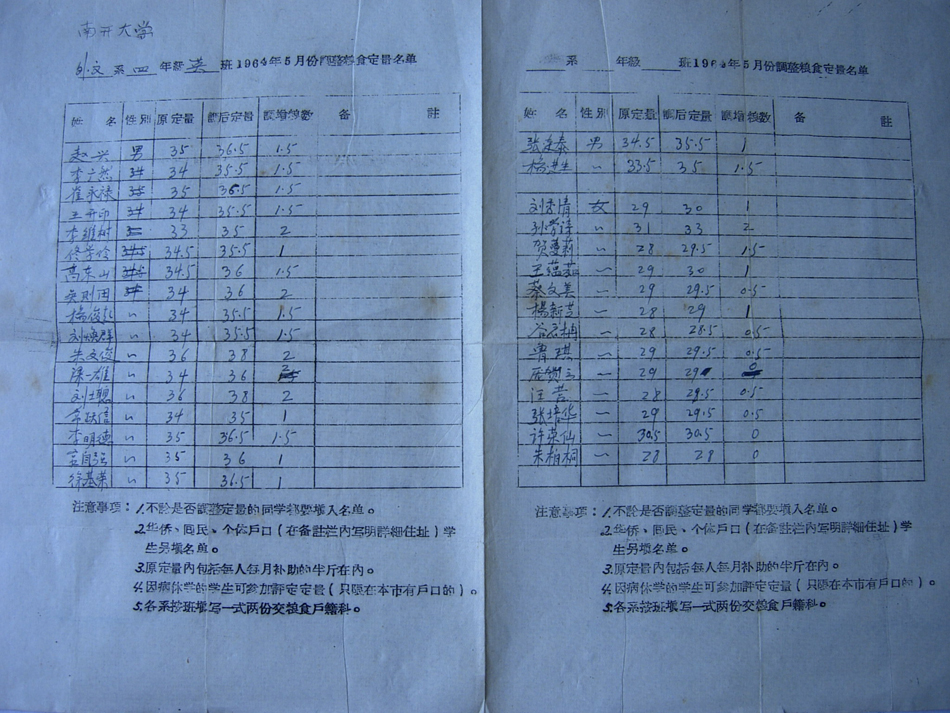 南开大学
外文系四年级英班1964年5月份調整粮食定量名单
姓名 性别 原定量 調后定量 調增榜数 备註
赵兴 男 35 36.5 1.5
李广然 34 35.5 1.5
崔永禄 35 36.5 1.5
王 34 35.5 1.5
李维树 33 35 2
34.5 35.5 1
高东山 34.5 36 1.5
34 36 2
杨俊 〃 34 35.5 1.5
刘焕群 〃 34 35.5 1.5
朱文俊 〃 36 38 2
梁一雄 〃 34 36 2
刘士聪 〃 36 38 2
〃 34 35 1
李明德 〃 35 36.5 1.5
自强 〃 35 36 1
徐基荣 〃 35 36.5 1
注意事項：1.不論是否調整定量的同学都要填入名单。
2.华侨、回民、个体戶口（在备註栏内写明詳細住址）学
生另填名单。
3.原定量内包括每人每月补助的半斤在內。
4.因病休学的学生可参加評定定量（只限在本市有戶口的）。
5.各系按班填写一式两份交粮食戶籍科。
系 年级 班1964年5月份調整粮食定量名单
姓名 性别 原定量 調后定量 調增榜数 备註
张 男 34.5 35.5 1
杨 〃 33.5 35 1.5
刘秀清 女 29 30 1
孙学诗 〃 31 33 2
贺曼莉 〃 28 29.5 1.5
王蕴茹 〃 29 30 1
蔡文美 〃 29 29.5 0.5
杨新芝 〃 28 29 1
谷启楠 〃 28 28.5 0.5
曹琪 〃 29 29.5 0.5
〃 29 29 0
汪 〃 28 29.5 0.5
张培华 〃 29 29.5 0.5
许荣仙 〃 30.5 30.5 0
朱柏桐 〃 28 28 0
注意事項：1.不論是否調整定量的同学都要填入名单。
2.华侨、回民、个体戶口（在备註栏内写明詳細住址）学
生另填名单。
3.原定量内包括每人每月补助的半斤在內。
4.因病休学的学生可参加評定定量（只限在本市有戶口的）。
5.各系按班填写一式两份交粮食戶籍科。